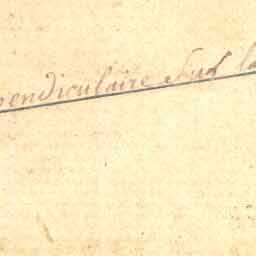 pendiculaire sur la